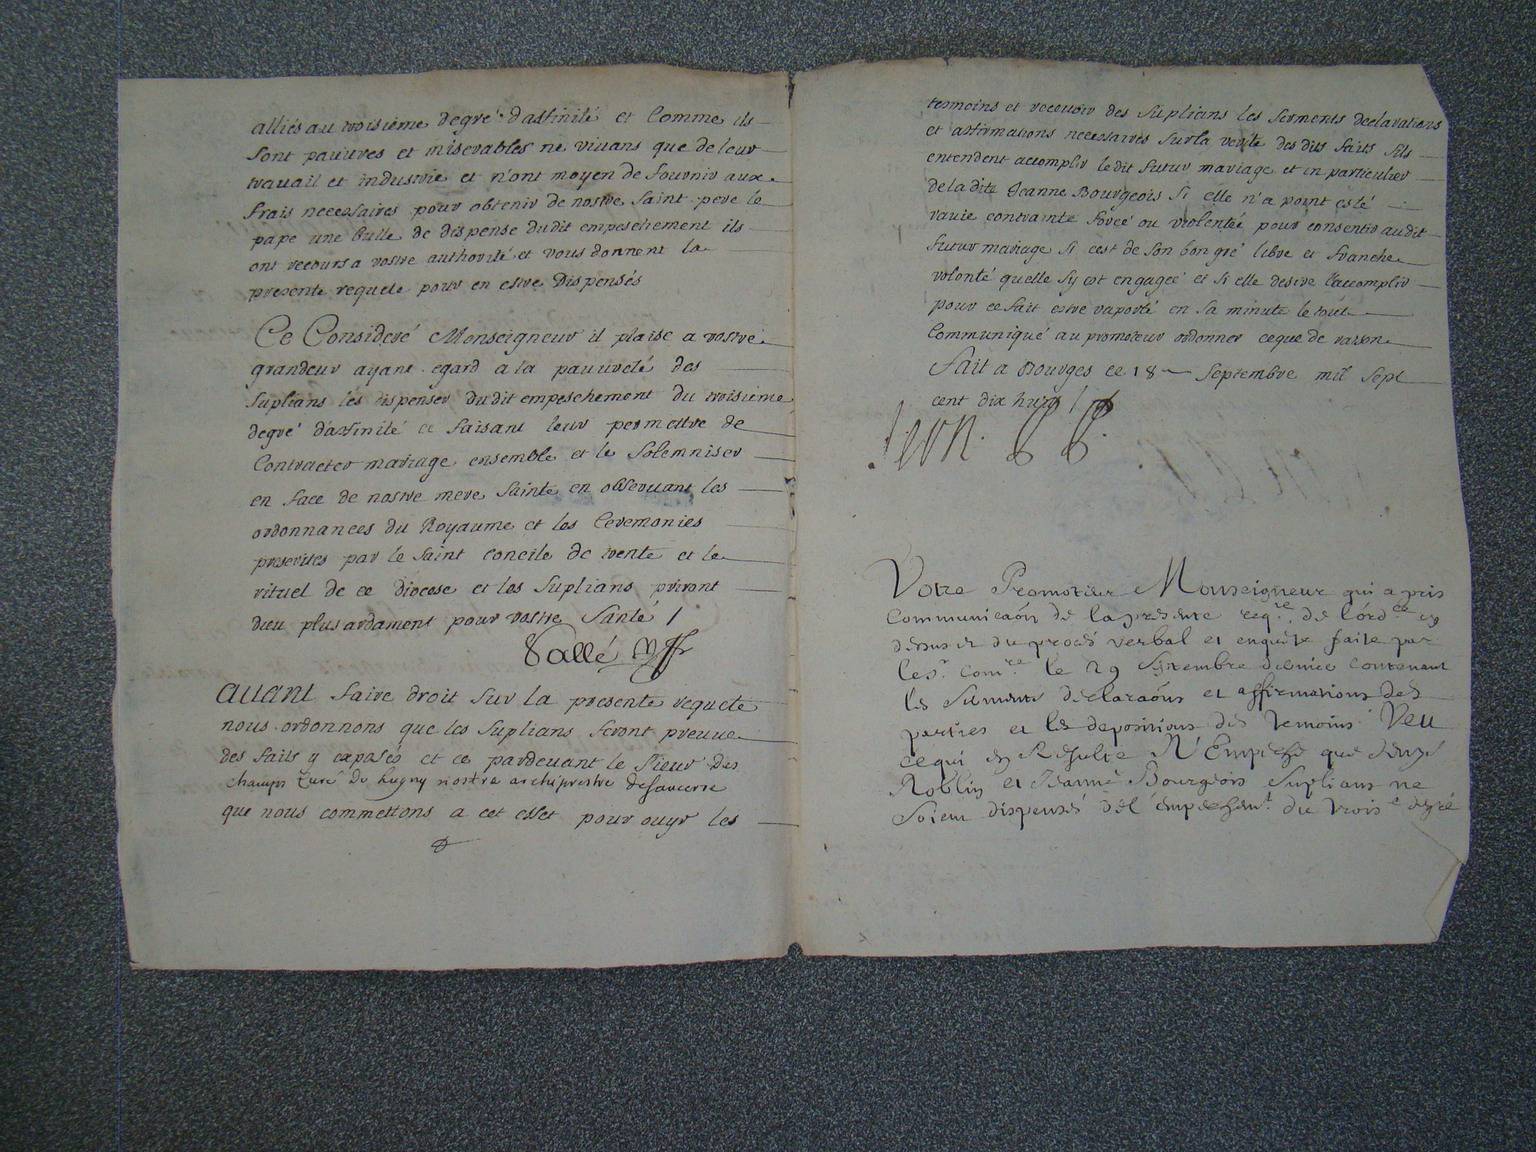 alliés au troisième degré d'affinité et Comme ils
sont pauures et miserables ne viuans que de leur
trauail et industrie et n'ont moyen de fournir aux
frais necessaires pour obtenir de nostre saint pere le
pape une bulle de dispense dudit empeschement ils
ont recours a vostre authorité et vous donnent la
presente requete pour en estre Dispensés
Ce Consideré Monseigneur il plaise a vostre
grandeur ayant egard a la pauureté des
suplians les dispenser dudit empeschement du troisieme
degré d'affinité ce faisant leur permettre de
Contracter mariage ensemble et le solemniser
en face de nostre mere sainte en obseruant les
ordonnances du Royaume et les Ceremonies
prescrites par le saint concile de trente et le
rituel de ce diocese et les suplians priront
dieu plus ardament pour vostre santé /
Vallé
auant faire droit sur la presente requete
nous ordonnons que les suplians feront preuue
des faits y exposés et ce pardeuant le sieur Des
champs Curé de Lugny nostre archiprestre de sancerre
que nous commettons a cet effet pour ouyr les
temoins et receuoir des suplians les serments declarations
et affirmations necessaires sur la verité des dits faits sils
entendent accomplir ledit futur mariage et en particulier
de la dite Jeanne Bourgeois si elle n'a point esté
rauie contrainte forcé ou violentée pour consentir audit
futur mariage si c'est de son bon gré libre et franche
volonté quelle sy est engageé et si elle desire l'accomplir
pour ce fait estre raporté en sa minute le tout
Communiqué au promoteur ordonner ce que de raison
Fait a Bourges ce 18 Septembre mil sept
cent dix huit /
Leon.
Votre Promoteur Monseigneur qui a pris
communicaon de la presente reqte. de l'ordce
dessus et du procés verbal et enquéte faite par
le sr. comre le 29 Septembre dernier contenant
les serments declaraons et affirmations des
parties et les depositions des temoins Veu
ce qui en Resulte N'Empéche que Denys
Roblin et Jeanne Bourgeois suplians ne
soient dispensés de l'empeschemt. du trois e degré